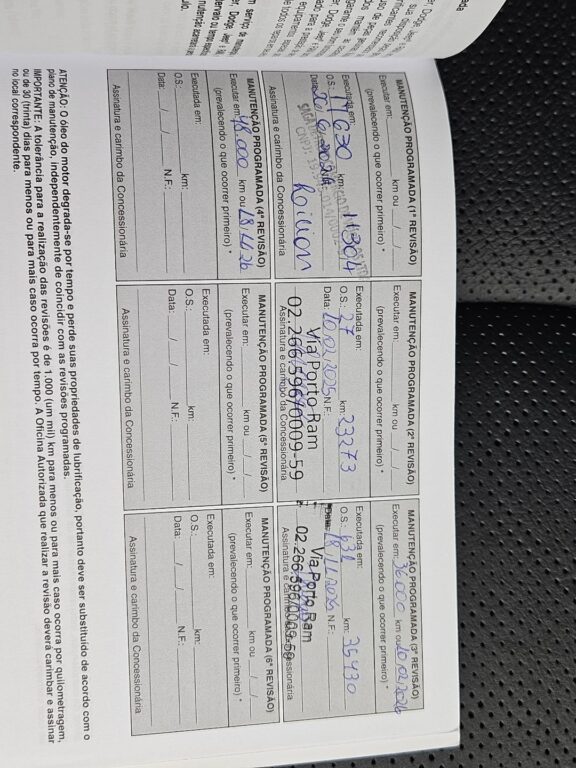 MANUTENÇÃO PROGRAMADA (1ª REVISÃO)
Executar em: km ou / /
(prevalecendo o que ocorrer primeiro) *
Executada em:
O.S.: 1630 km: 11304
Data:
Assinatura e carimbo da Concessionária
MANUTENÇÃO PROGRAMADA (2ª REVISÃO)
Executar em: km ou / /
(prevalecendo o que ocorrer primeiro) *
Executada em:
O.S.: 27 km: 23273
Data: 10/02/2025 N.F.:
Via Porto Ram
02.266.596/0009-59
Assinatura e carimbo da Concessionária
MANUTENÇÃO PROGRAMADA (3ª REVISÃO)
Executar em: 36000 km ou 10/02/2026
(prevalecendo o que ocorrer primeiro) *
Executada em:
O.S.: 631 km: 35430
Data: N.F.:
Via Porto Ram
02.266.596/0009-59
Assinatura e carimbo da Concessionária
MANUTENÇÃO PROGRAMADA (4ª REVISÃO)
Executar em: 48.000 km ou
(prevalecendo o que ocorrer primeiro) *
Executada em:
O.S.: km:
Data: / / N.F.:
Assinatura e carimbo da Concessionária
MANUTENÇÃO PROGRAMADA (5ª REVISÃO)
Executar em: km ou / /
(prevalecendo o que ocorrer primeiro) *
Executada em:
O.S.: km:
Data: / / N.F.:
Assinatura e carimbo da Concessionária
MANUTENÇÃO PROGRAMADA (6ª REVISÃO)
Executar em: km ou / /
(prevalecendo o que ocorrer primeiro) *
Executada em:
O.S.: km:
Data: / / N.F.:
Assinatura e carimbo da Concessionária
ATENÇÃO: O óleo do motor degrada-se por tempo e perde suas propriedades de lubrificação, portanto deve ser substituído de acordo com o
plano de manutenção, independentemente de coincidir com as revisões programadas.
IMPORTANTE: A tolerância para a realização das revisões é de 1.000 (um mil) km para menos ou para mais caso ocorra por quilometragem,
ou de 30 (trinta) dias para menos ou para mais caso ocorra por tempo. A Oficina Autorizada que realizar a revisão deverá carimbar e assinar
no local correspondente.